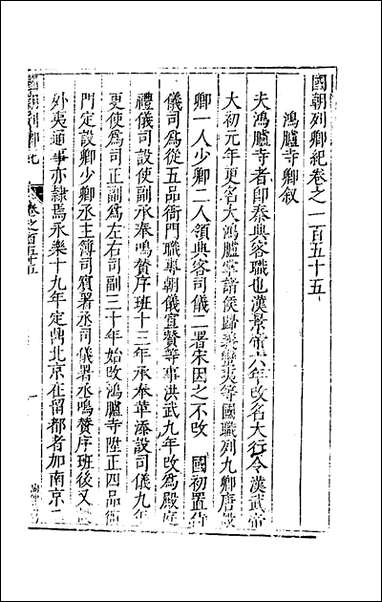 國朝列卿紀卷之一百五十五
鴻臚寺卿叙
夫鴻臚寺者即秦典客職也漢景帝六年改名大行令漢武帝
大初元年更名大鴻臚掌諸侯歸義蠻夷等國職列九卿唐設
卿一人少卿二人領典客司儀二署宋因之不改　國初置侍
儀司爲從五品衙門職專朝儀宣贊等事洪武九年改爲殿庭
禮儀司設使副承奉鳴贊序班十三年承奉革添設司儀九年
更使爲司正副爲左右司副三十年始改鴻臚寺陞正四品衙
門定設卿少卿丞主簿司賓署丞司儀署丞鳴贊序班後又設
外夷通事亦隷焉永樂十九年定鼎北京在留都者加南京二
國朝列卿紀
卷之百五十五
一